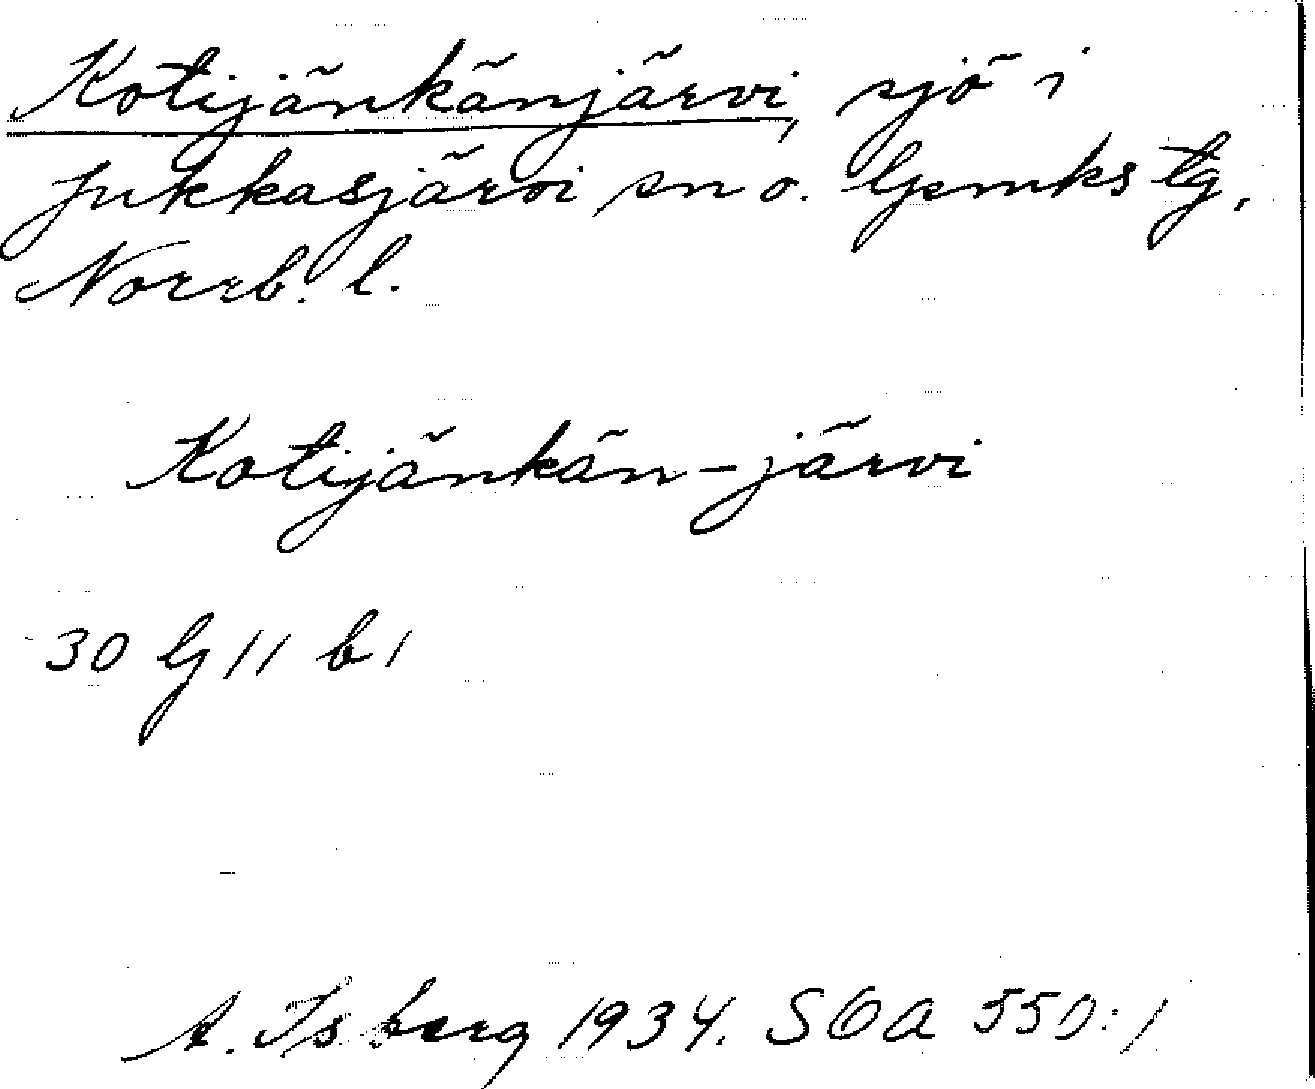 Kotijänkänjärvi, sjö i
Jukkasjärvi sn o. Gsmks tg,
Norrb. l.
Kotijänkän-järvi
30 G 11 b 1
A. Isberg 1934. SOA 550:1